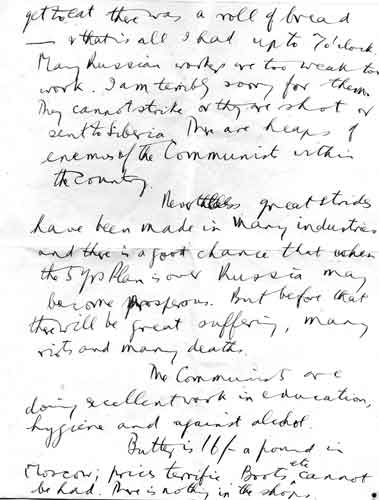 get to eat there was a roll of bread
— & that is all I had up to 7 o'clock.
Many Russian workers are too weak to
work. I am terribly sorry for them.
They cannot strike or they are shot or
sent to Siberia. There are heaps of
enemies of the Communist within
the country.
Nevertheless great strides
have been made in many industries
and there is a good chance that when
the 5 yrs Plan is over Russia may
become prosperous. But before that
there will be great suffering, many
riots and many deaths.
The Communists are
doing excellent work in education,
hygiene and against alcohol.
Butter is 16/- a pound in
Moscow; prices terrific Boots etc cannot
be had. There is nothing in the shops.